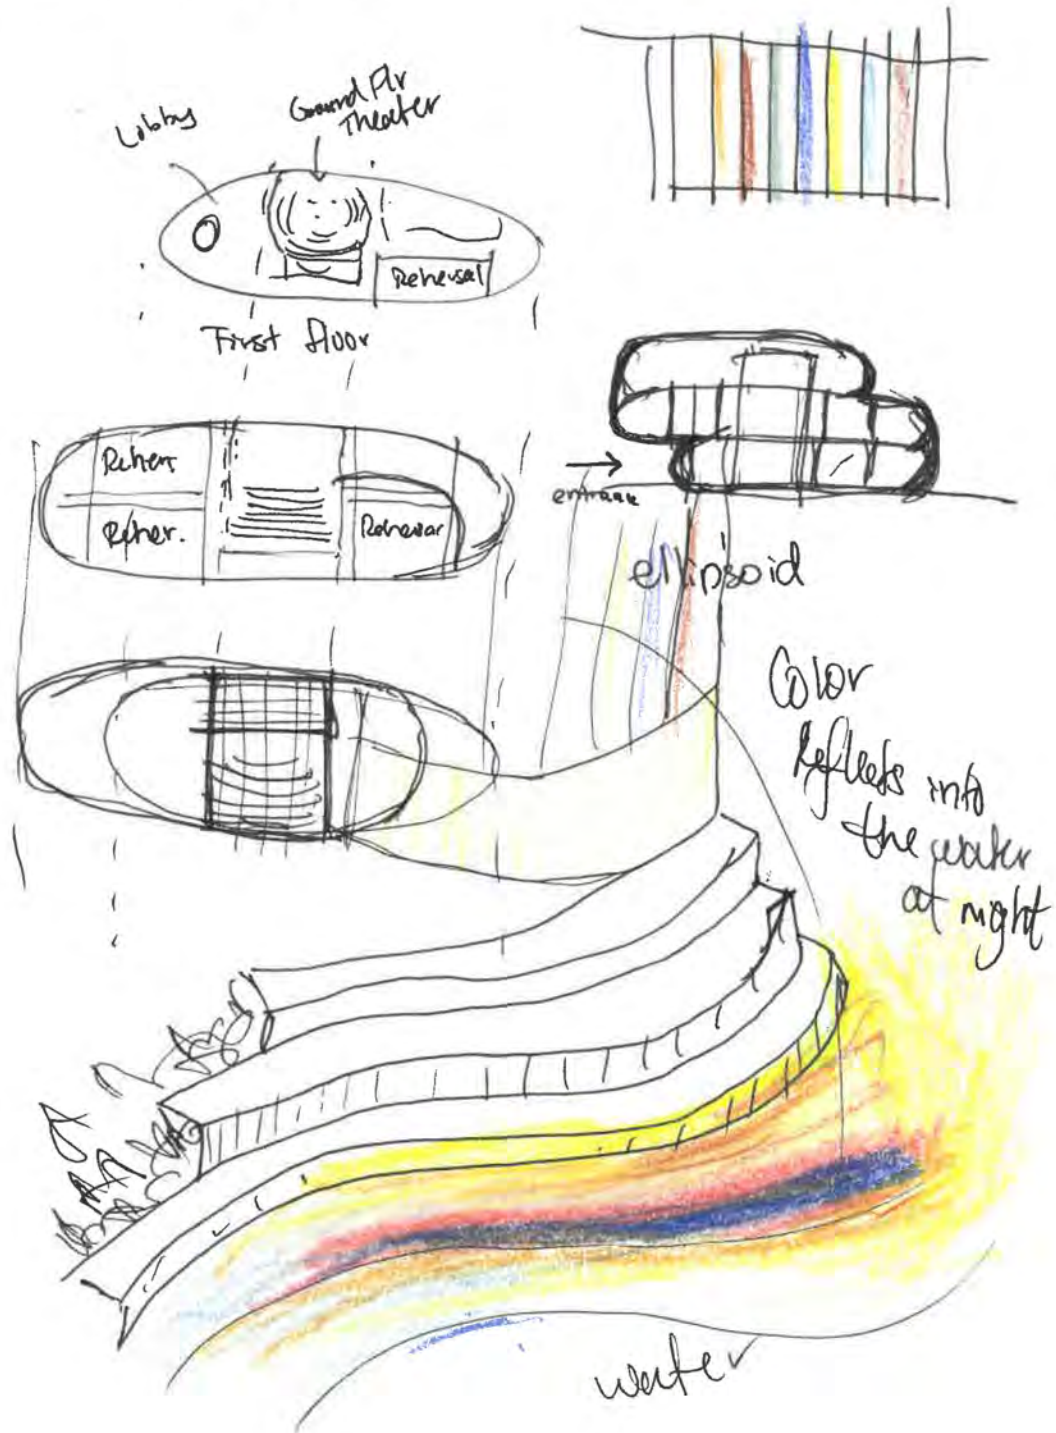 Lobby
Ground Flr
Theater
Rehersal
First floor
Rehers
Reher.
Rehersar
entrance
ellipsoid
Color
Reflects into
the water
at night
water